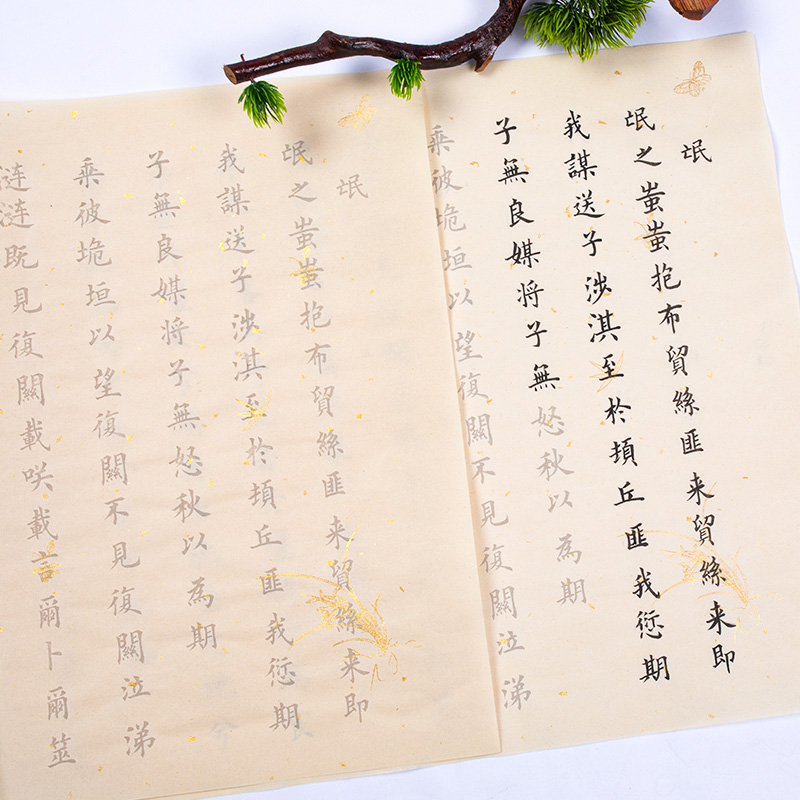 氓
氓之蚩蚩抱布貿絲匪来貿絲来即
我謀送子涉淇至於頓丘匪我愆期
子無良媒将子無怒秋以為期
乗彼垝垣以望復關不見復關泣涕
氓
氓之蚩蚩抱布貿絲匪来貿絲来即
我謀送子涉淇至於頓丘匪我愆期
子無良媒将子無怒秋以為期
乗彼垝垣以望復關不見復關泣涕
漣漣既見復關載咲載言爾卜爾筮